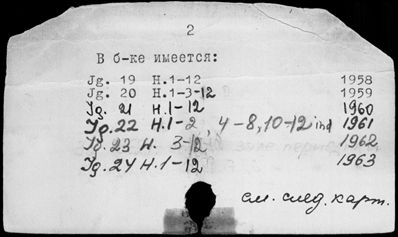 2
В б-ке имеется:
Jg. 19 H.1-12 1958
Jg. 20 H.1-3-12 1959
Jg. 21 H.1-12 1960
Jg. 22 H.1-2, 4-8, 10-12 ind 1961
Jg. 23 H. 3-12 1962
Jg. 24 H.1-12 1963
см. след. карт.